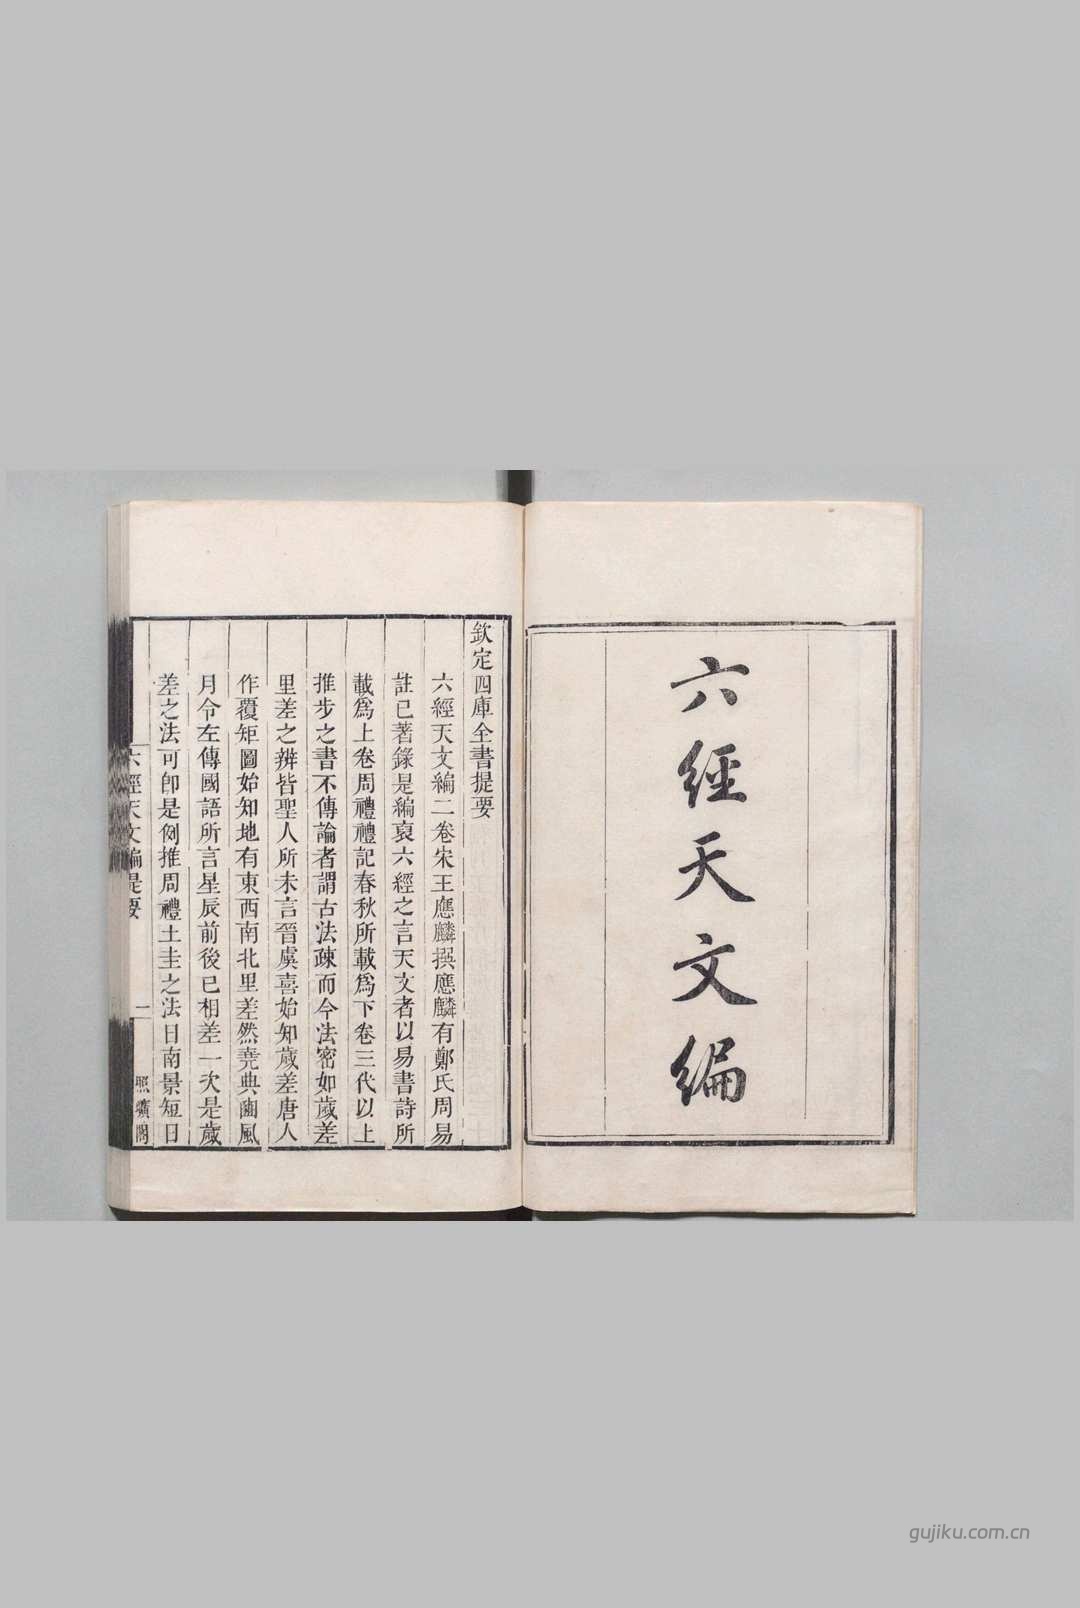 六經天文編
欽定四庫全書提要
六經天文編二卷宋王應麟撰應麟有鄭氏周易
註已著錄是編裒六經之言天文者以易書詩所
載爲上卷周禮禮記春秋所載爲下卷三代以上
推步之書不傳論者謂古法疎而今法密如歲差
里差之辨皆聖人所未言晉虞喜始知歲差唐人
作覆矩圖始知地有東西南北里差然堯典豳風
月令左傳國語所言星辰前後已相差一次是歲
差之法可卽是例推周禮土圭之法日南景短日
六經天文編提要
一
照曠閣
gujiku.com.cn